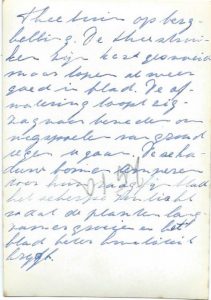 theetuin op berg-
helling. De theestrui-
ken zijn kort gesnoeid
maar lopen al weer
goed in blad. De af-
watering loopt zig-
zag naar beneden om
wegspoelen van grond
tegen te gaan. De scha-
duw bomen temperen
door hun blad
het scherpe zonlicht
zodat de planten lang-
zamer groeien en het
blad beter kwaliteit
krygt